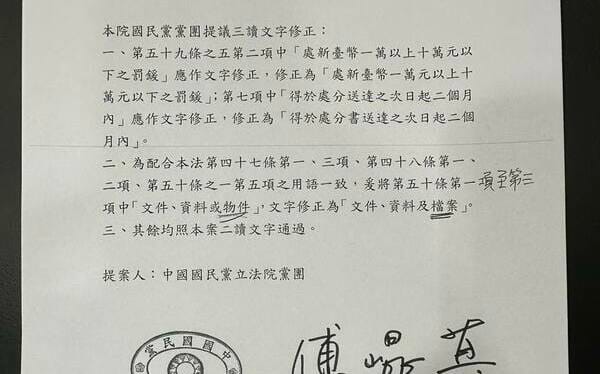 本院國民黨黨團提議三讀文字修正:
一、第五十九條之五第二項中「處新臺幣一萬以上十萬元以
下之罰鍰」應作文字修正,修正為「處新臺幣一萬元以上十
萬元以下之罰鍰」;第七項中「得於處分送達之次日起二個月
內」應作文字修正,修正為「得於處分書送達之次日起二個
月內」。
二、為配合本法第四十七條第一、三項、第四十八條第一、
二項、第五十條之一第五項之用語一致,爰將第五十條第一項至第三
項中「文件、資料或物件」,文字修正為「文件、資料及檔案」。
三、其餘均照本案二讀文字通過。
提案人:中國國民黨立法院黨團
中國國民黨
傅崐萁